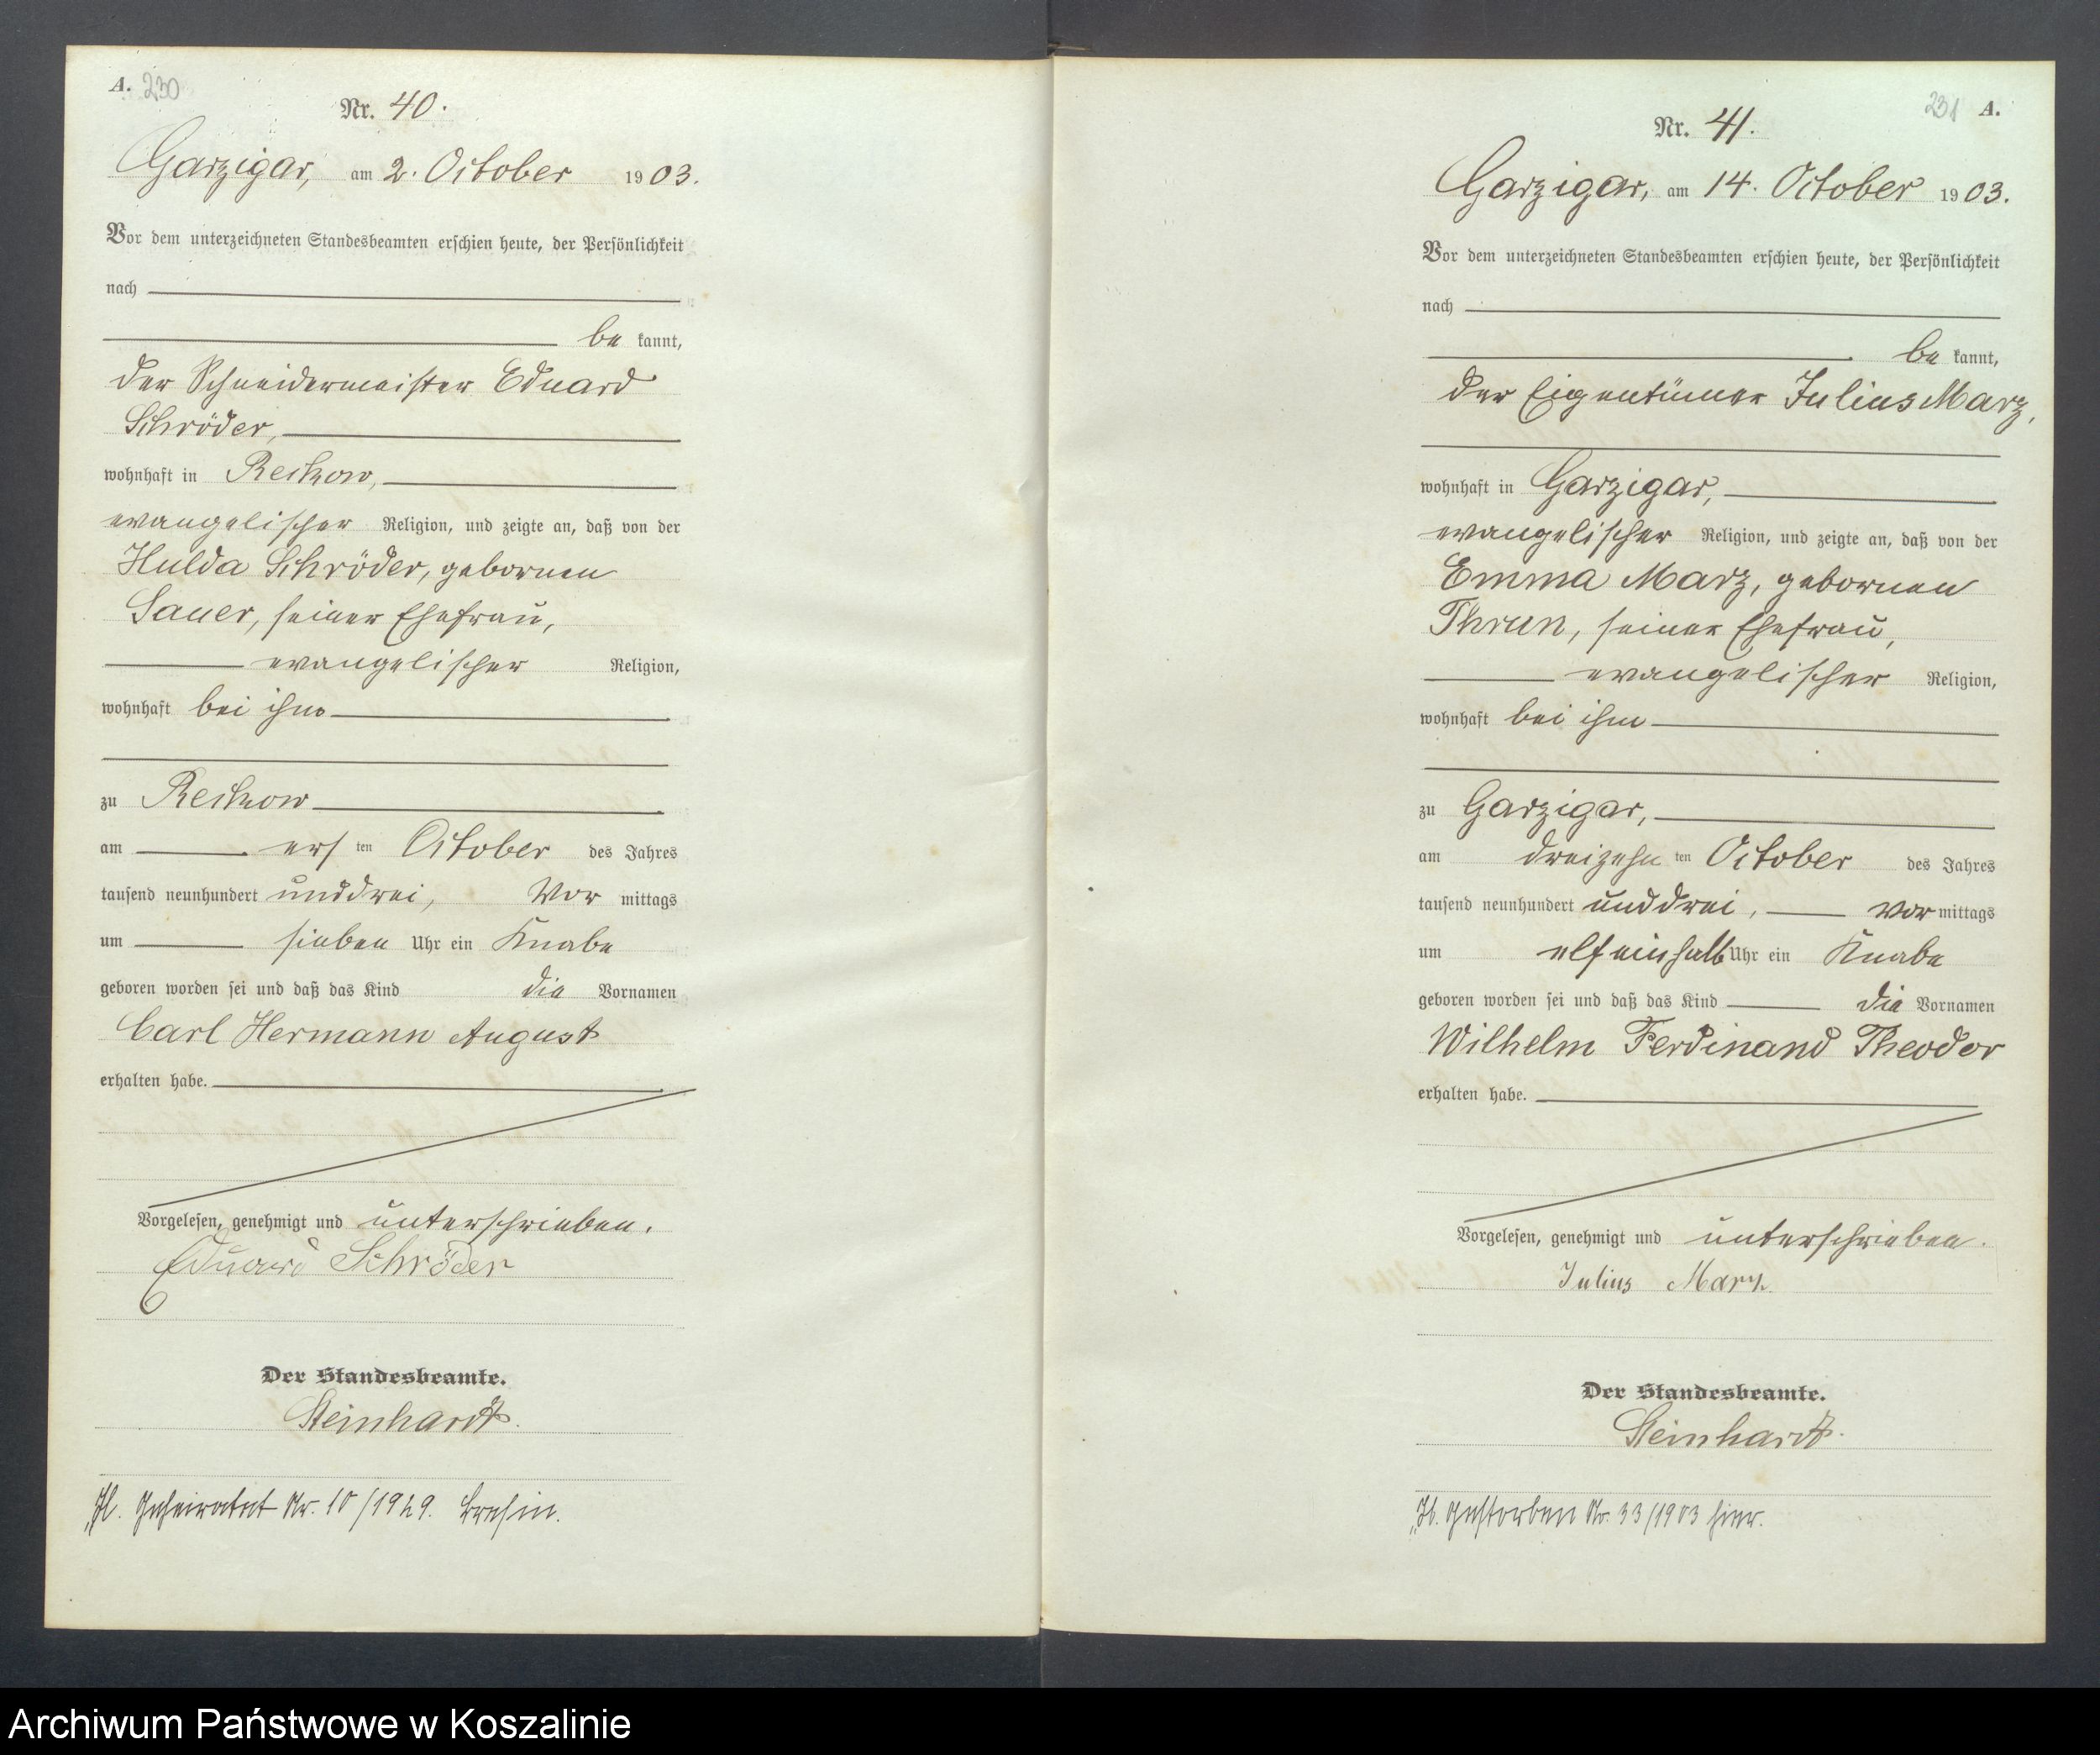 A. 230
Nr. 40.
Garzigar, am 2. October 1903.
Vor dem unterzeichneten Standesbeamten erschien heute, der Persönlichkeit
nach
be kannt,
der Schneidermeister Eduard
Schröder,
wohnhaft in Reckow,
evangelischer Religion, und zeigte an, daß von der
Hulda Schröder, gebornen
Sauer, seiner Ehefrau,
evangelischer Religion,
wohnhaft bei ihm
zu Reckow
am ers ten October des Jahres
tausend neunhundert unddrei, Vor mittags
um sieben Uhr ein Knabe
geboren worden sei und daß das Kind die Vornamen
Carl Hermann August
erhalten habe.
Vorgelesen, genehmigt und unterschrieben.
Eduard Schröder
Der Standesbeamte.
Steinhardt.
Geheiratet Nr. 10/1929.
231 A.
Nr. 41.
Garzigar, am 14. October 1903.
Vor dem unterzeichneten Standesbeamten erschien heute, der Persönlichkeit
nach
be kannt,
der Eigentümer Julius Marz,
wohnhaft in Garzigar,
evangelischer Religion, und zeigte an, daß von der
Emma Marz, gebornen
Thrun, seiner Ehefrau,
evangelischer Religion,
wohnhaft bei ihm
zu Garzigar,
am dreizehn ten October des Jahres
tausend neunhundert unddrei, Vor mittags
um elfeinhalb Uhr ein Knabe
geboren worden sei und daß das Kind die Vornamen
Wilhelm Ferdinand Theodor
erhalten habe.
Vorgelesen, genehmigt und unterschrieben.
Julius Marz.
Der Standesbeamte.
Steinhardt.
Gestorben Nr. 33/1903 hier.
Archiwum Państwowe w Koszalinie